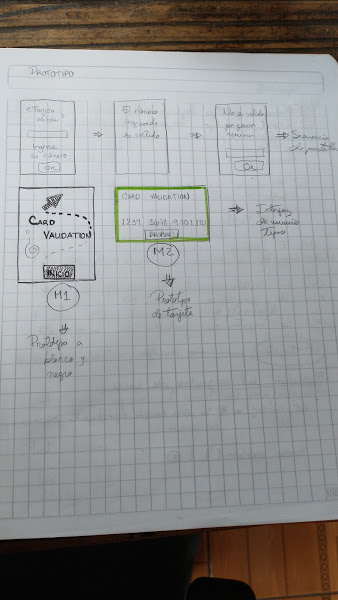 PROTOTIPO
¿Tarjeta
válida?
Ingrese
su número
OK
El número
ingresado
es válido
No es válido
por favor
OK
Secuencia
de pantalla
CARD
VALIDATION
INICIO
M1
Prototipo a
blanco y
negro
CARD VALIDATION
1234 5678 9101 1101
PROBAR
M2
Prototipo
de tarjeta
Interfaz
de usuario